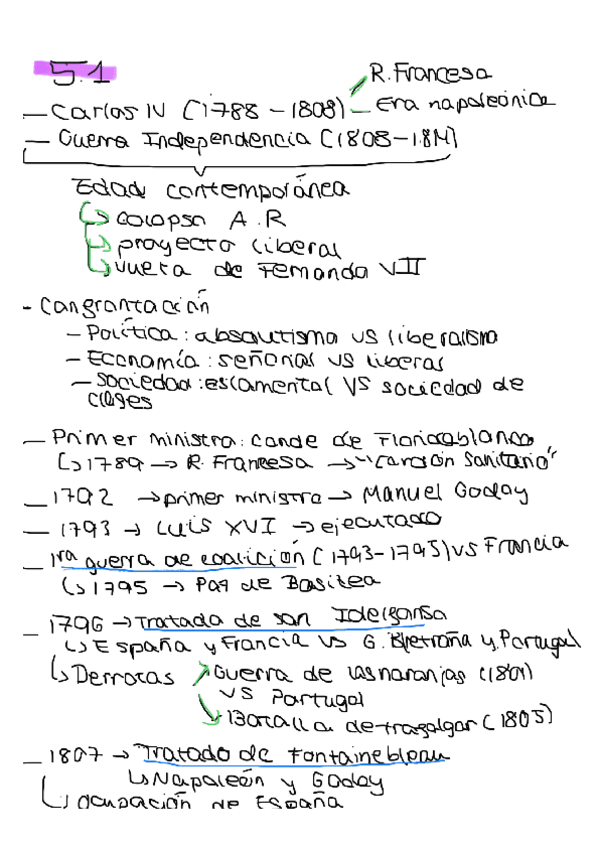 5.1
R. Francesa
— Carlos IV (1788 – 1808) – Era napoleónica
— Guerra Independencia (1808-1814)
Edad contemporánea
↳ colapso A.R
↳ proyecto liberal
↳ vuelta de Fernando VII
- Confrontación
– Política: absolutismo vs liberalismo
– Economía: señorial vs liberal
– sociedad: estamental VS sociedad de
clases
— Primer ministro: conde de Floridablanca
↳ 1789 → R. Francesa → "Cordón Sanitario"
— 1792 → primer ministro → Manuel Godoy
— 1793 → Luis XVI → ejecutado
— 1ra guerra de coalición (1793-1795) vs Francia
↳ 1795 → Paz de Basilea
— 1796 → Tratado de san Idelfonso
↳ España y Francia vs G. Bretaña y Portugal
↳ Derrotas ↗ Guerra de las naranjas (1801)
vs Portugal
↘ Batalla de trafalgar (1805)
— 1807 → Tratado de Fontainebleau
↳ Napoleón y Godoy
↳ ocupación de España